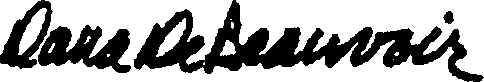 Dana DeBeauvoir